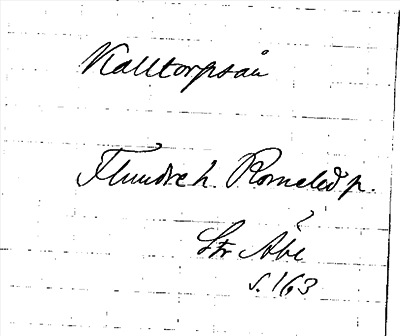 Kalltorpsån
Flundre h. Romeled p.
Str Åbe
s. 163